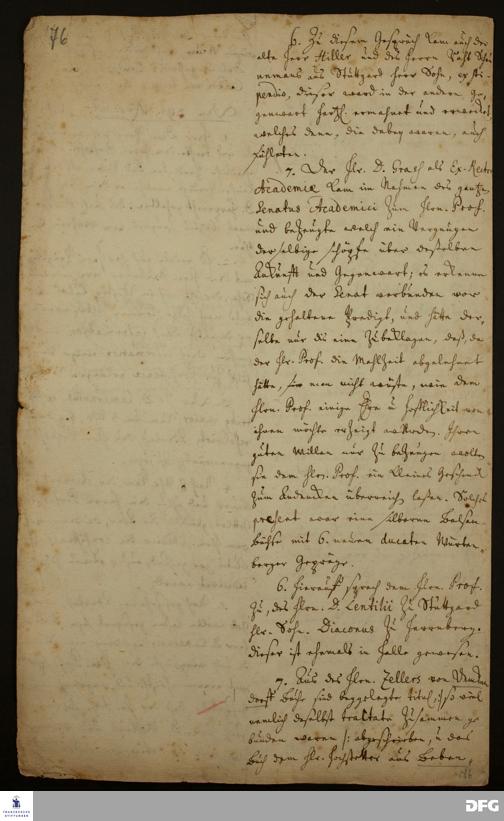 76
6. Zu diesem Gespräch kam auch der
alte Herr Hiller und des Herrn
aus Stuttgard Herr Sohn, ex sti-
pendio, dieser ward in der andern Ge-
genwart hertzl. ermahnet und erwecket,
welches denn, die dabey waren, auch
fühleten.
7. Der Hr. D. als Ex-Rector
Academiæ kam im Nahmen des gantzen
Senatus Academici zum Hrn. Prof.
und bezeugte welch ein Vergnügen
derselbige schöpfe über desselben
Ankunfft und Gegenwart; es erkenne
sich auch der Senat verbunden vor
die gehaltene Predigt, und hätte der-
selbe nur dis eine zu beklagen, daß, da
der Hr. Prof. die Mahlzeit abgelehnet
hätte, man nicht wüste, wie dem
Hrn. Prof. einige Ehre u Höflichkeit von
ihnen möchte erzeigt werden. Ihren
guten Willen nur zu bezeugen wolten
sie dem Hrn. Prof. ein kleines Geschenck
zum Andencken überreichen laßen. Solches
present war eine silberne Balsam
büchse mit 6. neuen ducaten Würten-
berger Gepräge.
6. Hierauf sprach dem Hrn. Prof.
zu, des Hrn. D. Lentilii zu Stuttgard
Hr. Sohn. Diaconus zu Herrnberg.
dieser ist ehmals in Halle gewesen.
7. Aus des Hrn. Zellers von
dorff Buche sind beygelegte titul, /: so viel
nemlich deselbst tractate zusammen ge-
bunden waren :/ abgeschrieben, u das
Buch dem Hr. Hochstetter aus Beben-
FRANCKESCHE STIFTUNGEN
DFG